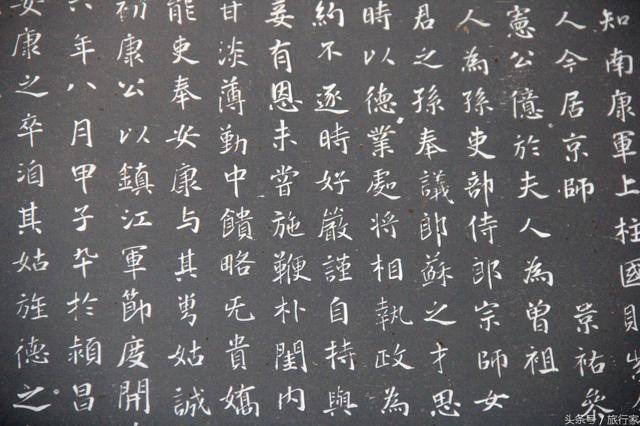 知南康軍上柱國賜紫金
人今居京師 景祐參
憲公億於夫人為曾祖
人為孫吏部侍郎宗師女
君之孫奉議郎蘇之才思
時以德業處將相執政為
約不逐時好嚴謹自持與
妾有恩未嘗施鞭朴閨内
甘淡薄勤中饋略无貴嬌
能吏奉安康与其舅姑誠
初康公以鎮江軍節度開
六年八月甲子卒於潁昌
安康之卒洎其姑旌德之
头条号 / 旅行家